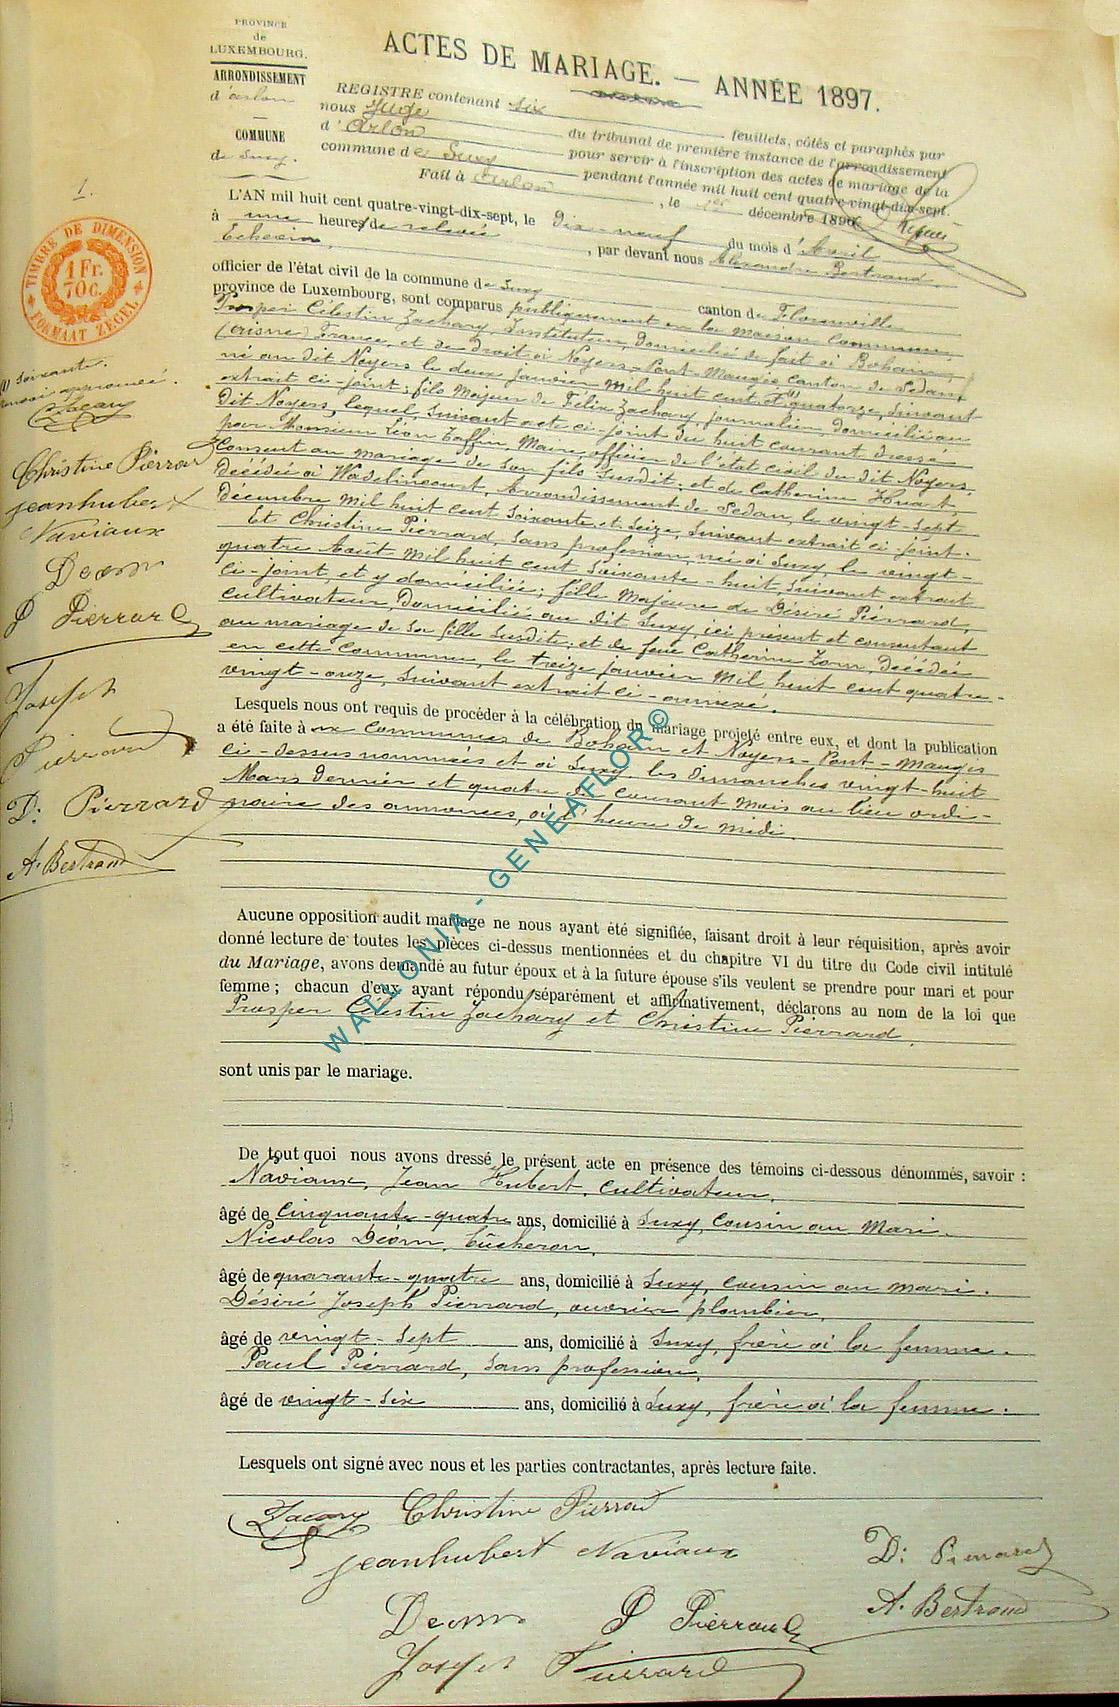 PROVINCE
de
LUXEMBOURG.
ARRONDISSEMENT
d'arlon
COMMUNE
de Suxy.
1.
ACTES DE MARIAGE. — ANNÉE 1897.
REGISTRE contenant six feuillets, côtés et paraphés par
nous Juge du tribunal de première instance de l'arrondissement
d'Arlon pour servir à l'inscription des actes de mariage de la
commune de Suxy pendant l'année mil huit cent quatre-vingt-dix-sept.
Fait à Arlon, le décembre 1896
L'AN mil huit cent quatre-vingt-dix-sept, le Dix neuf du mois d'Avril
à une heures de relevée, par devant nous Alexandre Bertrand
Echevin,
officier de l'état civil de la commune de Suxy canton de Florenville
province de Luxembourg, sont comparus publiquement en la maison commune,
Prosper Célestin Zachary Instituteur, domicilié de fait à Bohain,
(aisne) France, et de droit à Noyers-Pont-Maugis canton de Sedan,
né au dit Noyers le deux Janvier mil huit cent quatorze, suivant
extrait ci-joint; fils majeur de Félix Zachary, journalier, domicilié au
dit Noyers, lequel, suivant acte ci-joint du huit courant dressé
par Monsieur Léon Taffin Maire officier de l'état civil du dit Noyers,
consent au mariage de son fils susdit; et de Catherine Huart,
décédée à Wadelincourt, Arrondissement de Sedan, le vingt-sept
décembre mil huit cent soixante et seize, suivant extrait ci-joint.
Et Christine Piérrard, sans profession, née à Suxy, le vingt-
quatre Août mil huit cent soixante-huit, suivant extrait
ci-joint, et y domiciliée; fille majeure de Désiré Piérrard,
cultivateur, domicilié au dit Suxy, ici présent et consentant
au mariage de sa fille susdite; et de feue Catherine Zorn, décédée
en cette commune, le treize janvier mil huit cent quatre-
vingt-onze, suivant extrait ci-annexé.
Lesquels nous ont requis de procéder à la célébration du mariage projeté entre eux, et dont la publication
a été faite à ux communes de Bohain et Noyers-Pont-Maugis
ci-dessus nommées et à Suxy les dimanches vingt-huit
Mars dernier et quatre du courant mois au lieu ordi-
naire des annonces, à l'heure de midi
Aucune opposition audit mariage ne nous ayant été signifiée, faisant droit à leur réquisition, après avoir
donné lecture de toutes les pièces ci-dessus mentionnées et du chapitre VI du titre du Code civil intitulé
du Mariage, avons demandé au futur époux et à la future épouse s'ils veulent se prendre pour mari et pour
femme; chacun d'eux ayant répondu séparément et affirmativement, déclarons au nom de la loi que
Prosper Célestin Zachary et Christine Piérrard,
sont unis par le mariage.
De tout quoi nous avons dressé le présent acte en présence des témoins ci-dessous dénommés, savoir :
Naviaux, Jean Hubert, cultivateur,
âgé de cinquante-quatre ans, domicilié à Suxy, cousin au mari.
Nicolas Déom, bûcheron,
âgé de quarante-quatre ans, domicilié à Suxy, cousin au mari.
Désiré Joseph Piérrard, ouvrier plombier,
âgé de vingt-sept ans, domicilié à Suxy, frère à la femme.
Paul Piérrard, sans profession,
âgé de vingt-six ans, domicilié à Suxy, frère à la femme.
Lesquels ont signé avec nous et les parties contractantes, après lecture faite.
Zacary Christine Pierrard
jeanhubert Naviaux D: Pierrard
Deom P Pierrard A. Bertrand
Joseph Pierrard
TIMBRE DE DIMENSION
1 Fr.
70 c.
FORMAAT ZEGEL
soixante.
Zacary
Christine Pierrard
jeanhubert
Naviaux
Deom
P Pierrard
Joseph
Pierrard
D: Pierrard
A. Bertrand
WALLONIA - GENEAFLOR ©